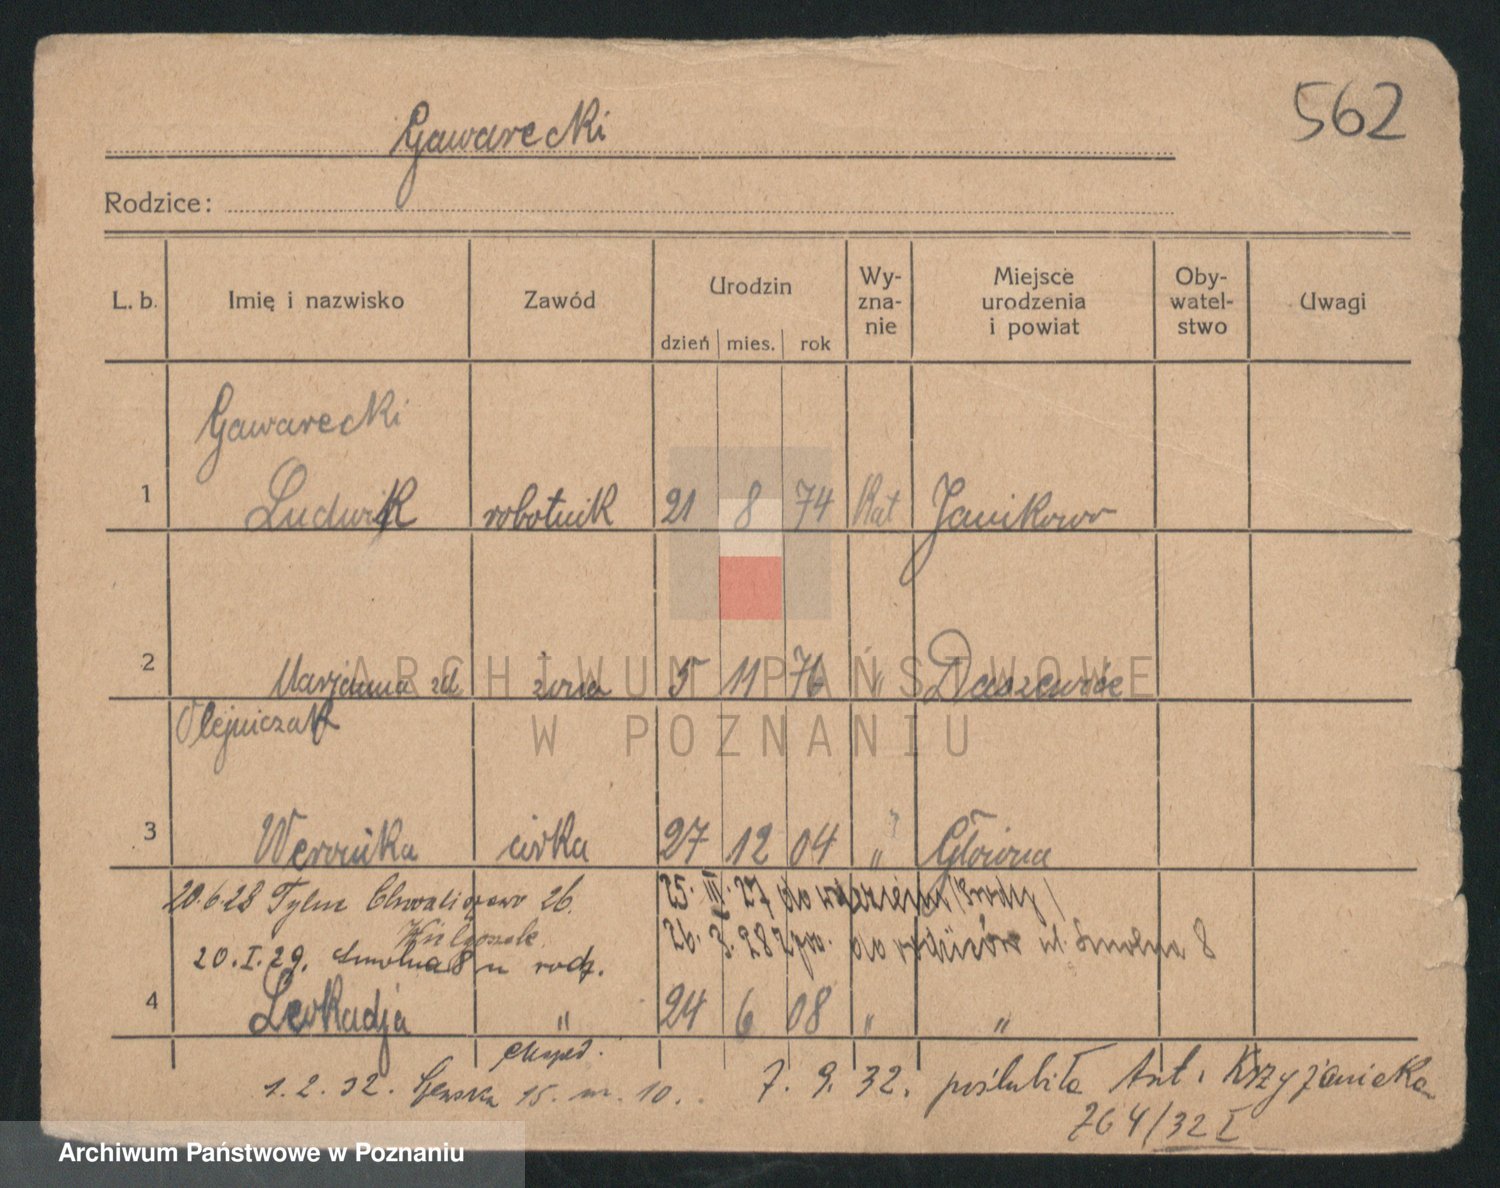 562
Gawarecki
Rodzice:
L. b. Imię i nazwisko Zawód Urodzin dzień mies. rok Wy-zna-nie Miejsce urodzenia i powiat Oby-watel-stwo Uwagi
Gawarecki
1 Ludwik robotnik 21 8 74 Kat Janikowo
2 Marjanna zd żona 5 11 76 " Daszewice
Olejniczak
ARCHIWUM PAŃSTWOWE
W POZNANIU
3 Weronika córka 27 12 04 " Główna
20.6.28 Tylne Chwaliszewo 26. 25. III. 27 do więzienia /Środy/
26. X. 28 do rodziców ul. Smolna 8
20.I.29. Smolna 8 u rodz.
4 Leokadja " 24 6 08 " "
eksped.
1.2.32. 15. m. 10. 7. 9. 32. poślubiła Ant. Krzyżaniaka
764/32 I
Archiwum Państwowe w Poznaniu